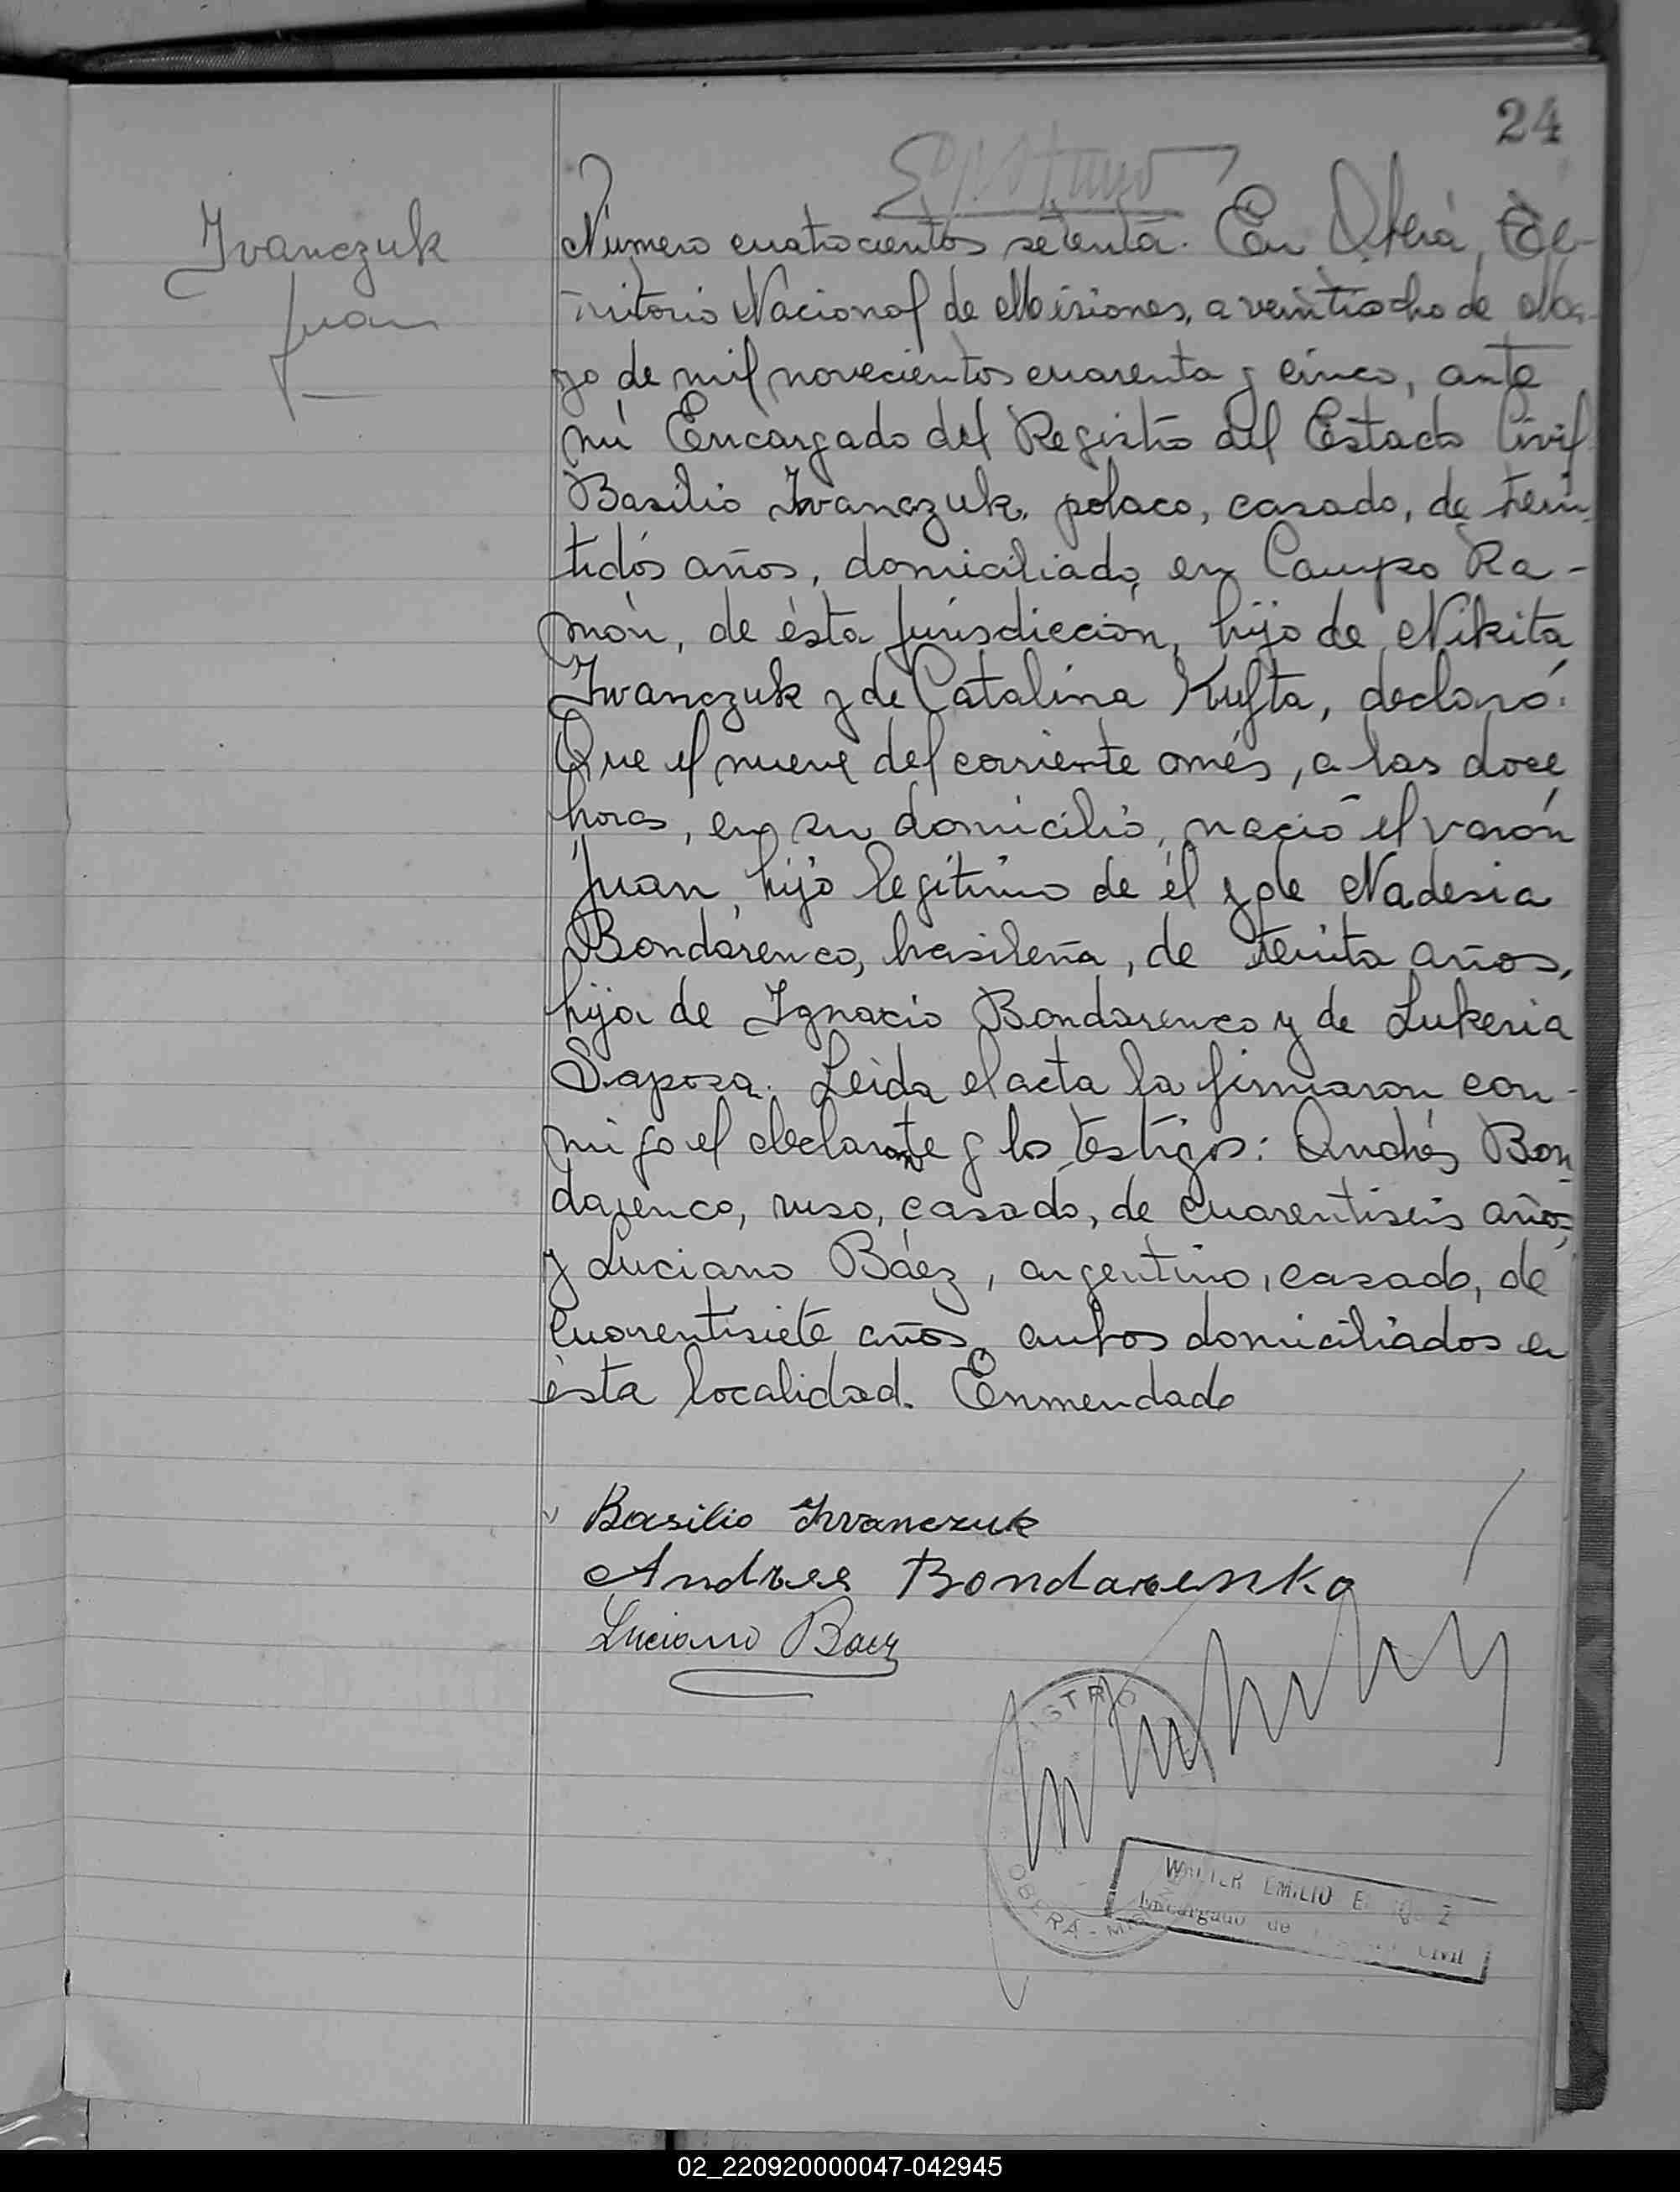 24
Ivanczuk
Juan
Número cuatrocientos setenta. En Oberá, Te-
rritorio Nacional de Misiones, a veintiocho de Ma-
yo de mil novecientos cuarenta y cinco, ante
mí Encargado del Registro del Estado Civil
Basilio Ivanczuk, polaco, casado, de trein-
tidós años, domiciliado en Campo Ra-
món, de ésta jurisdicción, hijo de Nikita
Ivanczuk y de Catalina Kufta, declaró:
Que el nueve del corriente més, a las doce
horas, en su domicilio, nació el varón
Juan, hijo legítimo de él y de Nadesia
Bondarenco, brasileña, de treinta años,
hija de Ignacio Bondarenco y de Lukeria
Saposa. Leida el acta la firmaron con-
migo el declarante y los testigos: Andrés Bon-
darenco, ruso, casado, de cuarentiseis años
y Luciano Báez, argentino, casado, de
cuarentisiete años, ambos domiciliados en
ésta localidad. Enmendado
Basilio Ivanczuk
Andres Bondarenko
Luciano Baez
REGISTRO
OBERÁ - 
WALTER EMILIO
Encargado de Civil
02_220920000047-042945